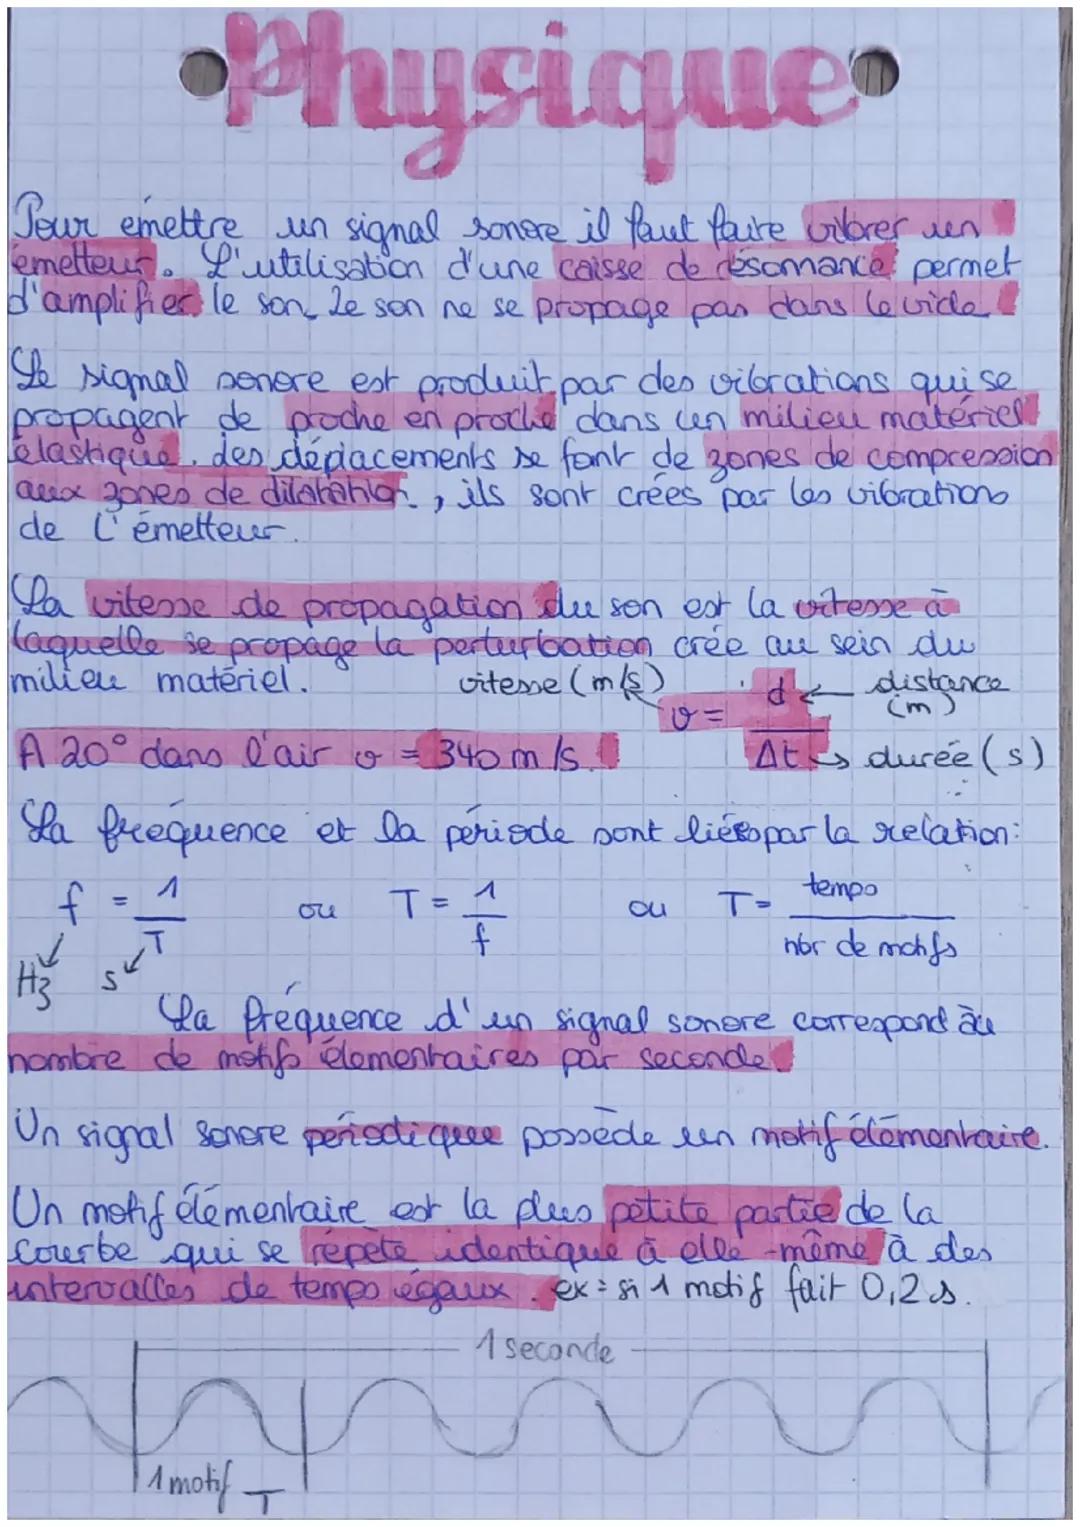 Physique
Pour émettre un signal sonore il faut faire vibrer un
émetteur. L'utilisation d'une caisse de résonnance permet
d'amplifier le son. Le son ne se propage pas dans le vide.
Le signal sonore est produit par des vibrations qui se
propagent de proche en proche dans un milieu matériel
élastique. des déplacements se font de zones de compression
aux zones de dilatation., ils sont crées par les vibrations
de l'émetteur.
La vitesse de propagation du son est la vitesse à
laquelle se propage la perturbation crée au sein du
milieu matériel.
vitesse (m/s)
v = d / Δt
distance (m)
durée (s)
A 20° dans l'air v = 340 m/s.
La fréquence et la période sont liées par la relation:
f = 1/T ou T = 1/f ou T = temps / nbr de motifs
Hz s
La fréquence d'un signal sonore correspond au
nombre de motifs élémentaires par seconde.
Un signal sonore périodique possède un motif élémentaire.
Un motif élémentaire est la plus petite partie de la
courbe qui se répète identique à elle-même à des
intervalles de temps égaux. ex: si 1 motif fait 0,2 s.
1 seconde
1 motif T